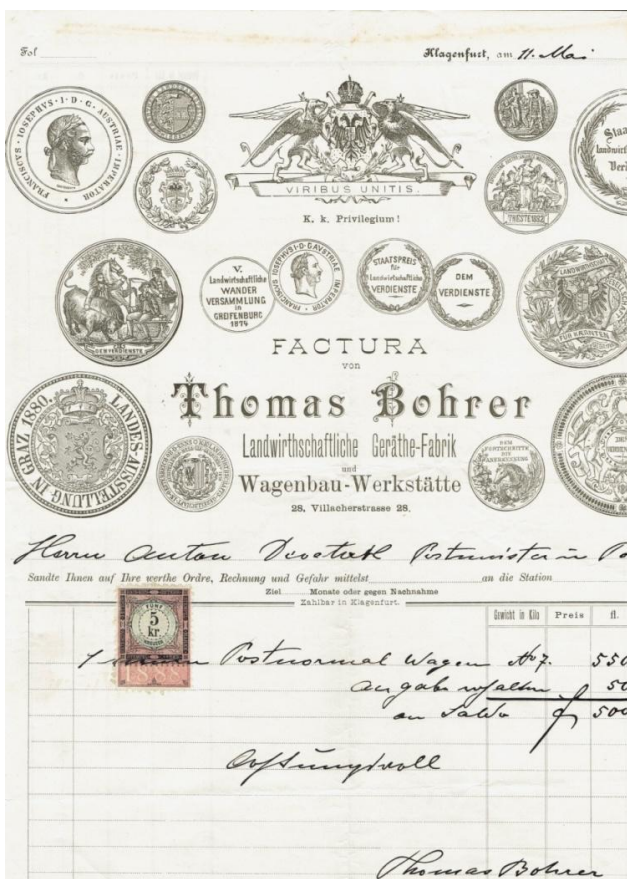 Fol
Klagenfurt, am 11. Mai
FRANCISCVS · IOSEPHVS · I · D · G · AUSTRIAE · IMPERATOR
VIRIBUS UNITIS.
K. k. Privilegium!
TRIESTE 1882
Staa
landwirt
Ver
DEM VERDIENSTE
V.
Landwirtschaftliche
WANDER
VERSAMMLUNG
IN
GREIFENBURG
1874
FRANCISCVS IOSEPHVS I·D·G·AVSTRIAE IMPERATOR
STAATSPREIS
für
Landwirtschaftliche
VERDIENSTE
DEM
VERDIENSTE
LANDWIRTHSCHAFT
FÜR KÄRNTEN
FACTURA
von
Thomas Bohrer
LANDES-AUSSTELLUNG IN GRAZ 1880.
Landwirthschaftliche Geräthe-Fabrik
und
Wagenbau-Werkstätte
28, Villacherstrasse 28.
DEM
FORTSCHRITTE
ZUR
ANERKENNUNG
Herrn Anton Postmeister in Po
Sandte Ihnen auf Ihre werthe Ordre, Rechnung und Gefahr mittelst an die Station
Ziel Monate oder gegen Nachnahme
Zahlbar in Klagenfurt.
Gewicht in Kilo Preis fl.
FÜNF
5
kr
1888
1 Postnormal Wagen No 7. 550
angabe erhalten 50
an Saldo 500
Achtungsvoll
Thomas Bohrer